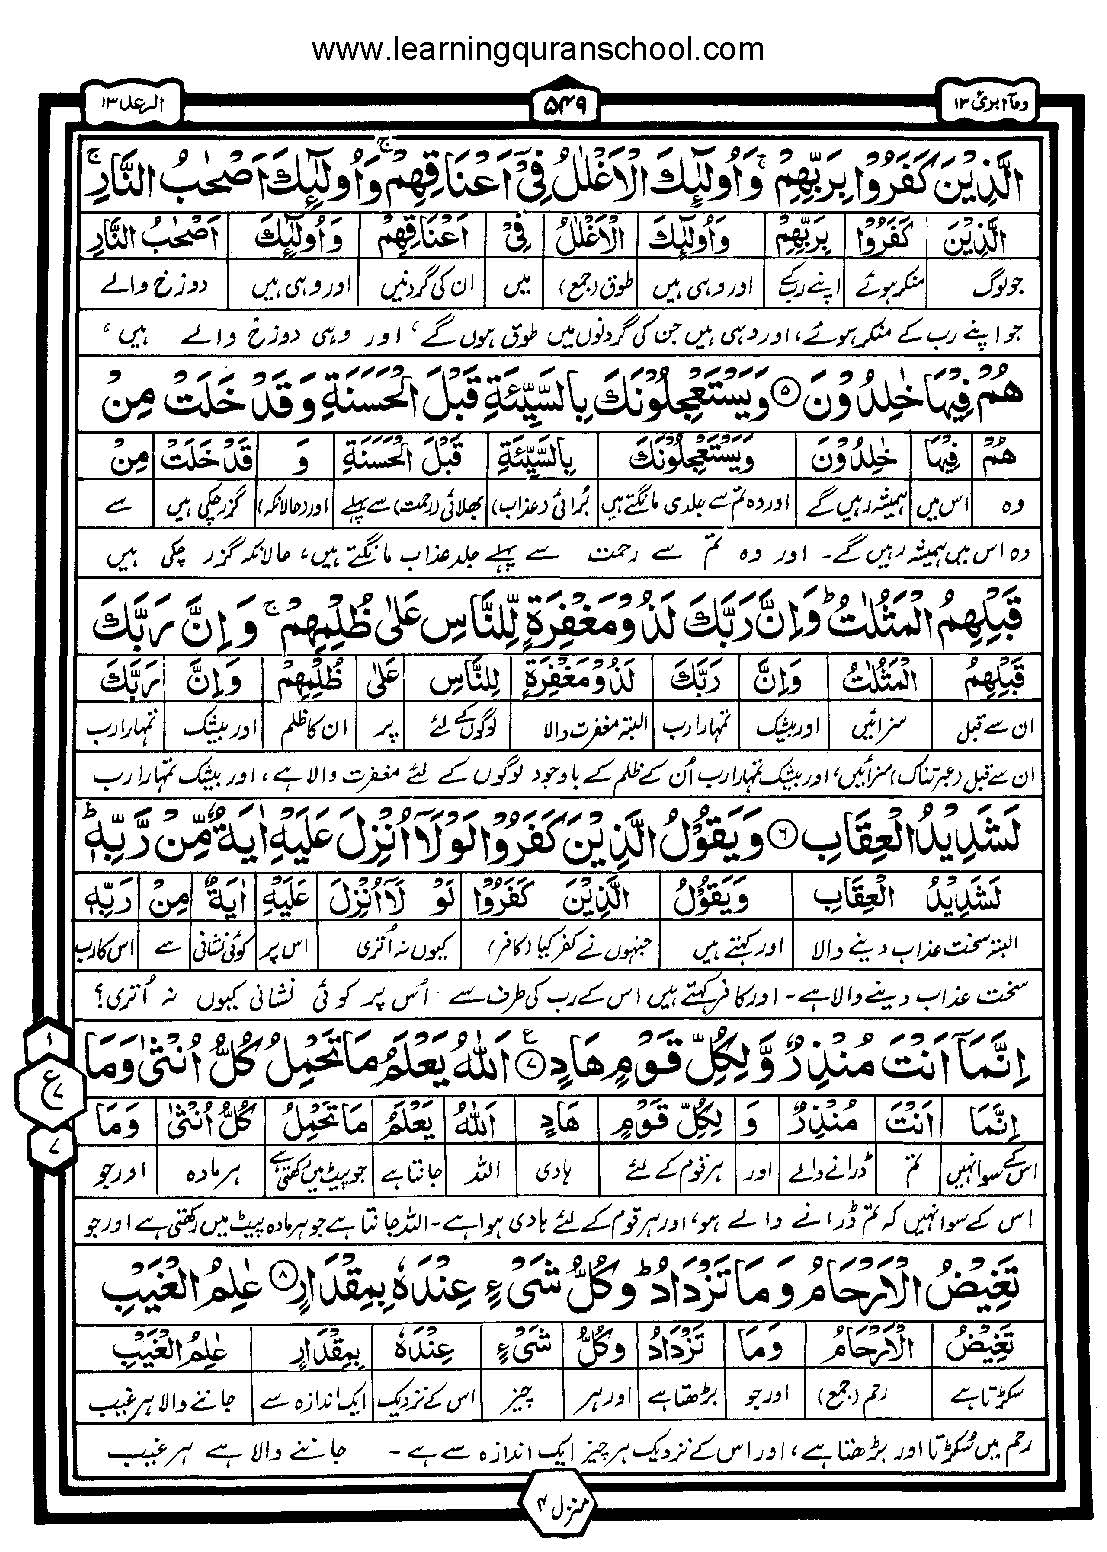 www.learningquranschool.com
وما ابرئ ۱۳
۵۴۹
الرعد ۱۳
الَّذِيْنَ كَفَرُوْا بِرَبِّهِمْ ۚ وَاُولٰٓئِكَ الْاَغْلٰلُ فِيْٓ اَعْنَاقِهِمْ ۚ وَاُولٰٓئِكَ اَصْحٰبُ النَّارِ ۚ
الَّذِيْنَ كَفَرُوْا بِرَبِّهِمْ وَاُولٰٓئِكَ الْاَغْلٰلُ فِيْٓ اَعْنَاقِهِمْ وَاُولٰٓئِكَ اَصْحٰبُ النَّارِ
جو لوگ منکر ہوئے اپنے رب کے اور وہی ہیں طوق (جمع) میں ان کی گردنیں اور وہی ہیں دوزخ والے
جو اپنے رب کے منکر ہوئے، اور وہی ہیں جن کی گردنوں میں طوق ہوں گے، اور وہی دوزخ والے ہیں،
هُمْ فِيْهَا خٰلِدُوْنَ ۵ وَيَسْتَعْجِلُوْنَكَ بِالسَّيِّئَةِ قَبْلَ الْحَسَنَةِ وَقَدْ خَلَتْ مِنْ
هُمْ فِيْهَا خٰلِدُوْنَ وَيَسْتَعْجِلُوْنَكَ بِالسَّيِّئَةِ قَبْلَ الْحَسَنَةِ وَ قَدْ خَلَتْ مِنْ
وہ اس میں ہمیشہ رہیں گے اور وہ تم سے جلدی مانگتے ہیں برائی (عذاب) بھلائی (رحمت) سے پہلے اور (حالانکہ) گزر چکی ہیں سے
وہ اس میں ہمیشہ رہیں گے۔ اور وہ تم سے رحمت سے پہلے جلد عذاب مانگتے ہیں، حالانکہ گزر چکی ہیں
قَبْلِهِمُ الْمَثُلٰتُ ؕ وَاِنَّ رَبَّكَ لَذُوْ مَغْفِرَةٍ لِّلنَّاسِ عَلٰى ظُلْمِهِمْ ۚ وَاِنَّ رَبَّكَ
قَبْلِهِمُ الْمَثُلٰتُ وَاِنَّ رَبَّكَ لَذُوْ مَغْفِرَةٍ لِلنَّاسِ عَلٰى ظُلْمِهِمْ وَاِنَّ رَبَّكَ
ان سے قبل سزائیں اور بیشک تمہارا رب البتہ مغفرت والا لوگوں کے لئے پر ان کا ظلم اور بیشک تمہارا رب
ان سے قبل (عبرتناک) سزائیں، اور بیشک تمہارا رب اُن کے ظلم کے باوجود لوگوں کے لئے مغفرت والا ہے، اور بیشک تمہارا رب
لَشَدِيْدُ الْعِقَابِ ۶ وَيَقُوْلُ الَّذِيْنَ كَفَرُوْا لَوْلَآ اُنْزِلَ عَلَيْهِ اٰيَةٌ مِّنْ رَّبِّهٖ ؕ
لَشَدِيْدُ الْعِقَابِ وَيَقُوْلُ الَّذِيْنَ كَفَرُوْا لَوْ لَآ اُنْزِلَ عَلَيْهِ اٰيَةٌ مِنْ رَبِّهٖ
البتہ سخت عذاب دینے والا اور کہتے ہیں جنہوں نے کفر کیا (کافر) کیوں نہ اُتری اس پر کوئی نشانی سے اس کا رب
سخت عذاب دینے والا ہے۔ اور کافر کہتے ہیں اس کے رب کی طرف سے اُس پر کوئی نشانی کیوں نہ اُتری؟
اِنَّمَآ اَنْتَ مُنْذِرٌ وَّلِكُلِّ قَوْمٍ هَادٍ ۷ ع اَللّٰهُ يَعْلَمُ مَا تَحْمِلُ كُلُّ اُنْثٰى وَمَا
۱
ع ۷
۷
اِنَّمَا اَنْتَ مُنْذِرٌ وَ لِكُلِّ قَوْمٍ هَادٍ اَللّٰهُ يَعْلَمُ مَا تَحْمِلُ كُلُّ اُنْثٰى وَمَا
اس کے سوا نہیں تم ڈرانے والے اور ہر قوم کے لئے ہادی اللہ جانتا ہے جو پیٹ میں رکھتی ہے ہر مادہ اور جو
اس کے سوا نہیں کہ تم ڈرانے والے ہو، اور ہر قوم کے لئے ہادی ہوا ہے۔ اللہ جانتا ہے جو ہر مادہ پیٹ میں رکھتی ہے اور جو
تَغِيْضُ الْاَرْحَامُ وَمَا تَزْدَادُ ؕ وَكُلُّ شَيْءٍ عِنْدَهٗ بِمِقْدَارٍ ۸ عٰلِمُ الْغَيْبِ
تَغِيْضُ الْاَرْحَامُ وَمَا تَزْدَادُ وَكُلُّ شَيْءٍ عِنْدَهٗ بِمِقْدَارٍ عٰلِمُ الْغَيْبِ
سکڑتا ہے رحم (جمع) اور جو بڑھتا ہے اور ہر چیز اس کے نزدیک ایک اندازہ سے جاننے والا ہر غیب
رحم میں سُکڑتا اور بڑھتا ہے، اور اس کے نزدیک ہر چیز ایک اندازہ سے ہے۔ جاننے والا ہے ہر غیب
منزل ۳